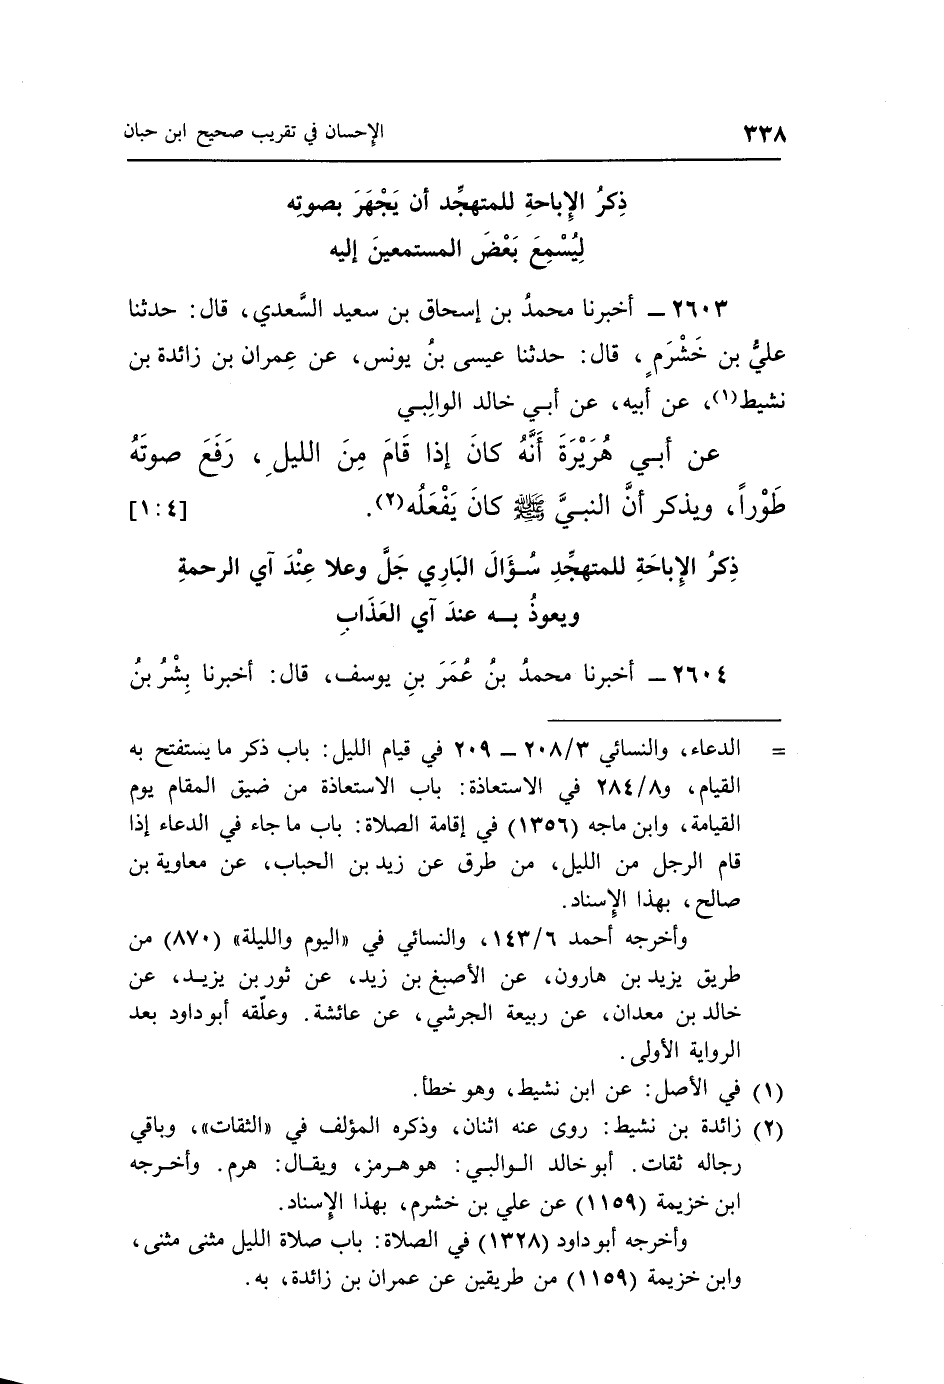 ٣٣٨ الإحسان في تقريب صحيح ابن حبان
ذِكرُ الإِباحةِ للمتهجِّد أن يَجْهَرَ بصوتِه
لِيُسْمِعَ بَعْضَ المستمعينَ إليه
٢٦٠٣ ــ أخبرنا محمدُ بن إسحاق بن سعيد السَّعدي، قال: حدثنا
عليُّ بن خَشْرَمٍ، قال: حدثنا عيسى بنُ يونس، عن عِمران بن زائدة بن
نشيط(١)، عن أبيه، عن أبـي خالد الوالِبـي
عن أبـي هُرَيْرَةَ أَنَّهُ كانَ إذا قَامَ مِنَ الليلِ، رَفَعَ صوتَهُ
طَوْراً، ويذكر أنَّ النبـيَّ ﷺ كانَ يَفْعَلُه(٢). [٤:١]
ذِكرُ الإِباحَةِ للمتهجِّدِ سُـؤَالَ البَارِي جَلَّ وعلا عِنْدَ آي الرحمةِ
ويعوذُ بــه عندَ آي العَذَابِ
٢٦٠٤ ــ أخبرنا محمدُ بنُ عُمَرَ بنِ يوسف، قال: أخبرنا بِشْرُ بنُ
= الدعاء، والنسائي ٢٠٨/٣ ــ ٢٠٩ في قيام الليل: باب ذكر ما يستفتح به
القيام، و٢٨٤/٨ في الاستعاذة: باب الاستعاذة من ضيق المقام يوم
القيامة، وابن ماجه (١٣٥٦) في إقامة الصلاة: باب ما جاء في الدعاء إذا
قام الرجل من الليل، من طرق عن زيد بن الحباب، عن معاوية بن
صالح، بهذا الإِسناد.
وأخرجه أحمد ١٤٣/٦، والنسائي في «اليوم والليلة» (٨٧٠) من
طريق يزيد بن هارون، عن الأصبغ بن زيد، عن ثور بن يزيـد، عن
خالد بن معدان، عن ربيعة الجرشي، عن عائشة. وعلّقه أبو داود بعد
الرواية الأولى.
(١) في الأصل: عن ابن نشيط، وهو خطأ.
(٢) زائدة بن نشيط: روى عنه اثنان، وذكره المؤلف في «الثقات»، وباقي
رجاله ثقات. أبو خالد الـوالبـي: هو هرمز، ويقـال: هرم. وأخـرجه
ابن خزيمة (١١٥٩) عن علي بن خشرم، بهذا الإِسناد.
وأخرجه أبو داود (١٣٢٨) في الصلاة: باب صلاة الليل مثنى مثنى،
وابن خزيمة (١١٥٩) من طريقين عن عمران بن زائدة، به.